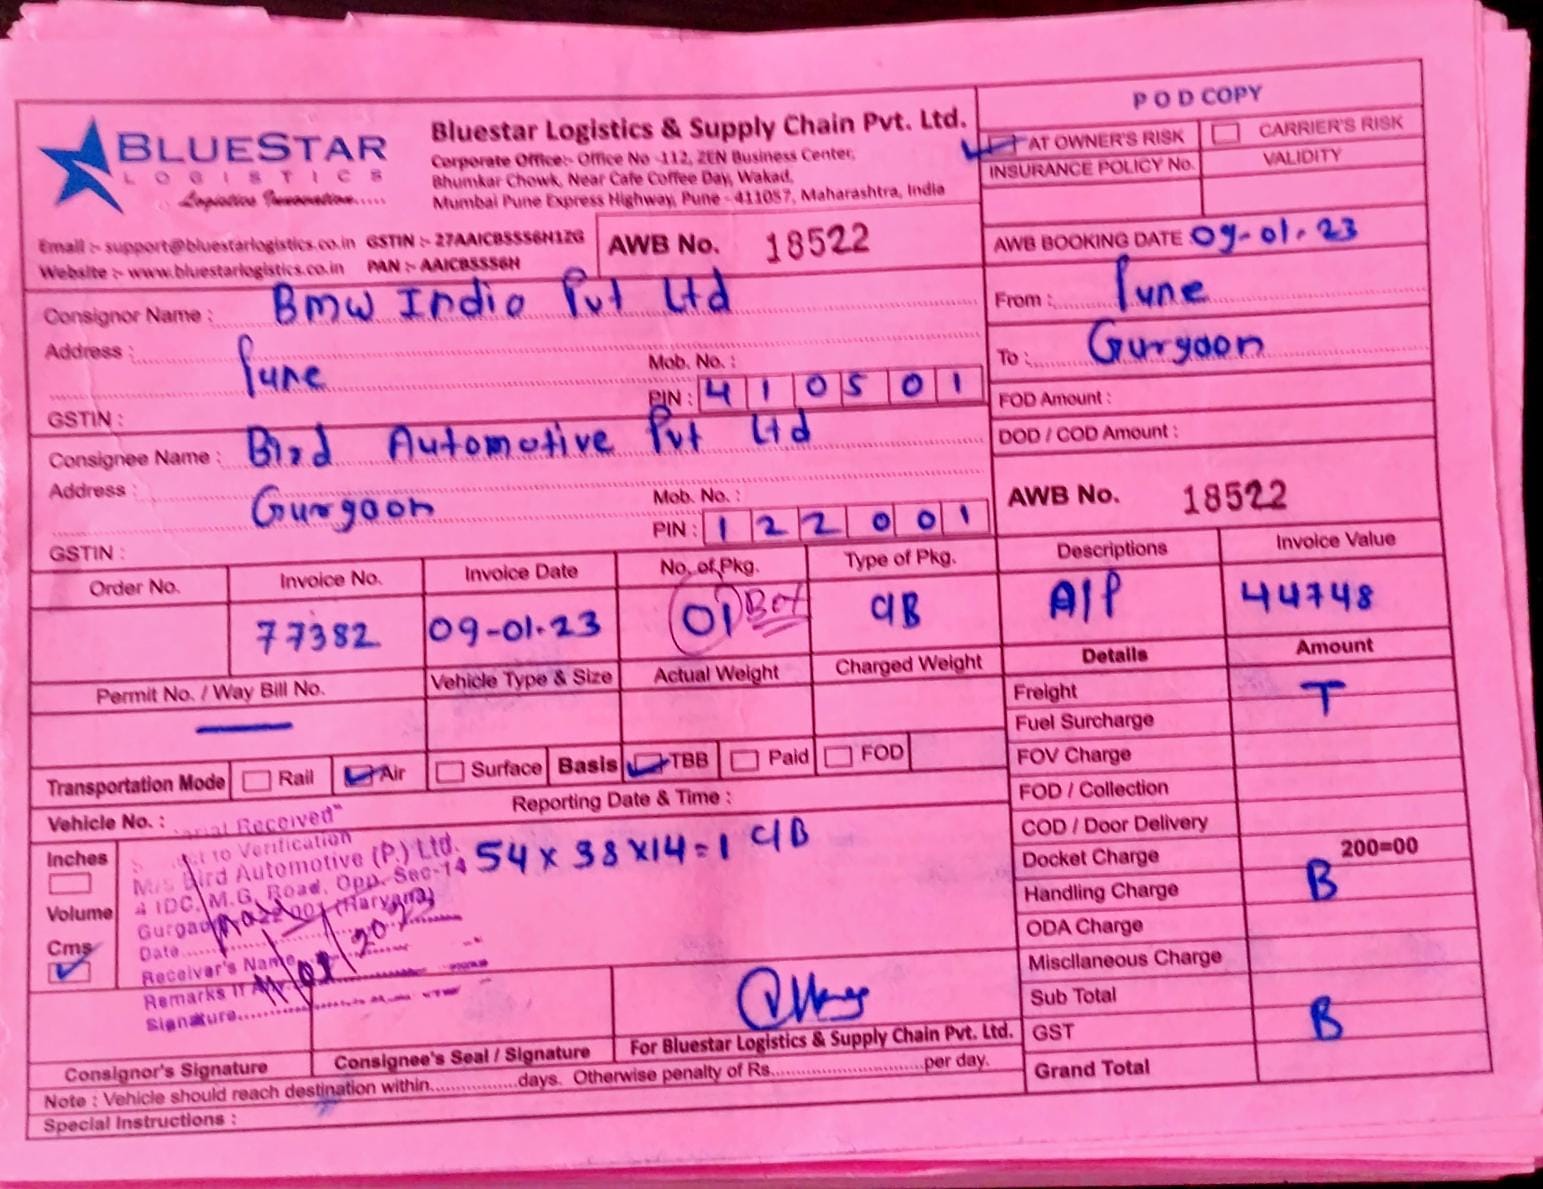 POD COPY
BLUESTAR
LOGISTICS
Logistics Innovation.....
Bluestar Logistics & Supply Chain Pvt. Ltd.
Corporate Office:- Office No -112, ZEN Business Center,
Bhumkar Chowk, Near Cafe Coffee Day, Wakad,
Mumbai Pune Express Highway, Pune - 411057, Maharashtra, India
AT OWNER'S RISK CARRIER'S RISK
INSURANCE POLICY No. VALIDITY
Email :- support@bluestarlogistics.co.in GSTIN :- 27AAICB5556H1ZG
Website :- www.bluestarlogistics.co.in PAN :- AAICB5556H
AWB No. 18522
AWB BOOKING DATE 09-01-23
Consignor Name : Bmw India Pvt Ltd
From : Pune
Address : Pune
Mob. No. :
To : Gurgaon
PIN : 410501
GSTIN :
FOD Amount :
Consignee Name : Bird Automotive Pvt Ltd
DOD / COD Amount :
Address : Gurgaon
Mob. No. :
AWB No. 18522
PIN : 122001
GSTIN :
Order No. Invoice No. Invoice Date No. of Pkg. Type of Pkg. Descriptions Invoice Value
77382 09-01-23 01 Box C/B A/P 44748
Permit No. / Way Bill No. Vehicle Type & Size Actual Weight Charged Weight Details Amount
—
Freight T
Fuel Surcharge
Transportation Mode Rail Air Surface Basis TBB Paid FOD
FOV Charge
Vehicle No. : Reporting Date & Time :
FOD / Collection
COD / Door Delivery
Inches
Volume
Cms
54 x 38 x 14 = 1 C/B
Received"
to Verification
M/s Bird Automotive (P.) Ltd.
4 IDC, M.G. Road, Opp. Sec-14
Gurgaon (Haryana)
Date
Receiver's Name
Remarks
Signature
Docket Charge 200=00
Handling Charge B
ODA Charge
Miscllaneous Charge
Sub Total
GST B
Grand Total
Consignor's Signature Consignee's Seal / Signature For Bluestar Logistics & Supply Chain Pvt. Ltd.
Note : Vehicle should reach destination within................days. Otherwise penalty of Rs............................per day.
Special Instructions :